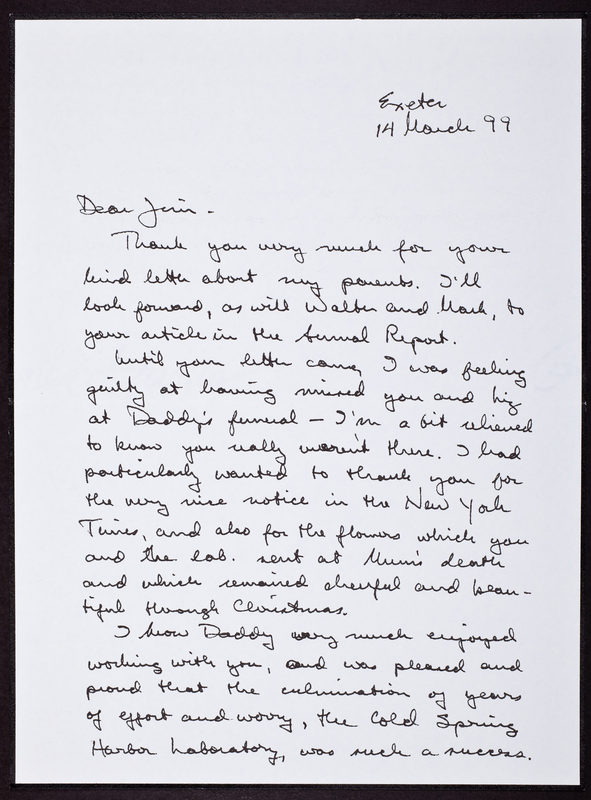 Exeter
14 March 99
Dear Jim -
Thank you very much for your
kind letter about my parents. I'll
look forward, as will Walter and Mark, to
your article in the Annual Report.
Until your letter came, I was feeling
guilty at having missed you and Liz
at Daddy's funeral — I'm a bit relieved
to know you really weren't there. I had
particularly wanted to thank you for
the very nice notice in the New York
Times, and also for the flowers which you
and the lab. sent at Mum's death
and which remained cheerful and beau-
tiful through Christmas.
I know Daddy very much enjoyed
working with you, and was pleased and
proud that the culmination of years
of effort and worry, the Cold Spring
Harbor Laboratory, was such a success.